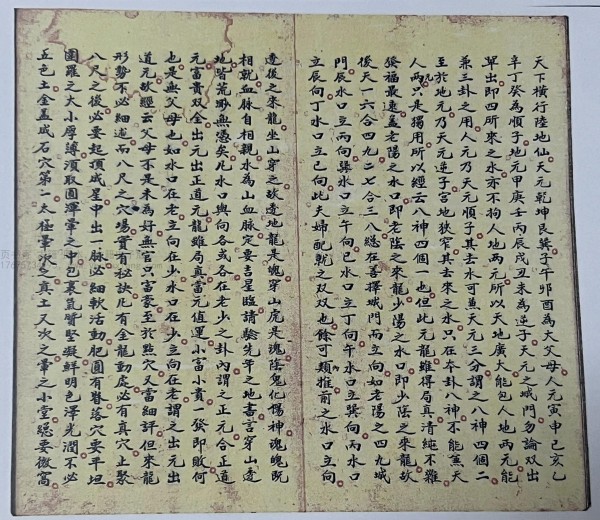 天下橫行陸地仙天元乾坤艮巽子午卯酉為大父母人元寅申巳亥乙
辛丁癸為順子地元甲庚壬丙辰戌丑未為逆子天元之城門勿論双出
單出即四所來之水亦不拘人地兩元所以天地廣大能包人地兩元能
兼三卦之用人元乃天元順子其去水可兼天元三分謂之八神四個二
至於地元乃天元逆子宮地狹窄其去來之水只在本卦八神不能兼天
人兩元只是獨用所以經云八神四個一也但此元龍雖得局真清純不雜
發福最遠盖老陽之水口即老陰之來龍少陽之水口即少陰之來龍故
後天一六合四九二七合三八緫在善擇城門而立向如老陽之四九城
門辰水口立丙向張水口立午向巳水口立丁向午水口立巽向丙水口
立辰向丁水口立巳向此夫婦配就之双双也餘可類推前之水口立向
邊後之來龍坐山穿之故透地龍是媿穿山虎是魂陰鬼化陽神魂媿既
相就血脉自相親水為山血脉定要吉星臨請驗先年之地書言穿山透
地皆荒渺無憑矣凡水口與向各或各在老少之卦內謂之正元合正道
元富貴双全出元出正道元龍雖局真當元值運小富小貴一發即敗何
也是無父母也如水口在老立向在少水口在少立向在老謂之出元出
道元故經云父母不是未為好無官只富豪至於點穴又當細評但來龍
形勢不必細述而八尺之穴塲實有秘訣凡有金龍動處必有真穴上聚
八尺之後必要起頂成星中出一脉必細軟活動肥圓有脊落穴要平坦
圍羅之大小厚薄須取圓渾暈之中包裹氣質堅凝鮮明色澤光潤不必
五色土金盖成石穴第一太極暈次之真土又次之暈之小堂緫要微窩